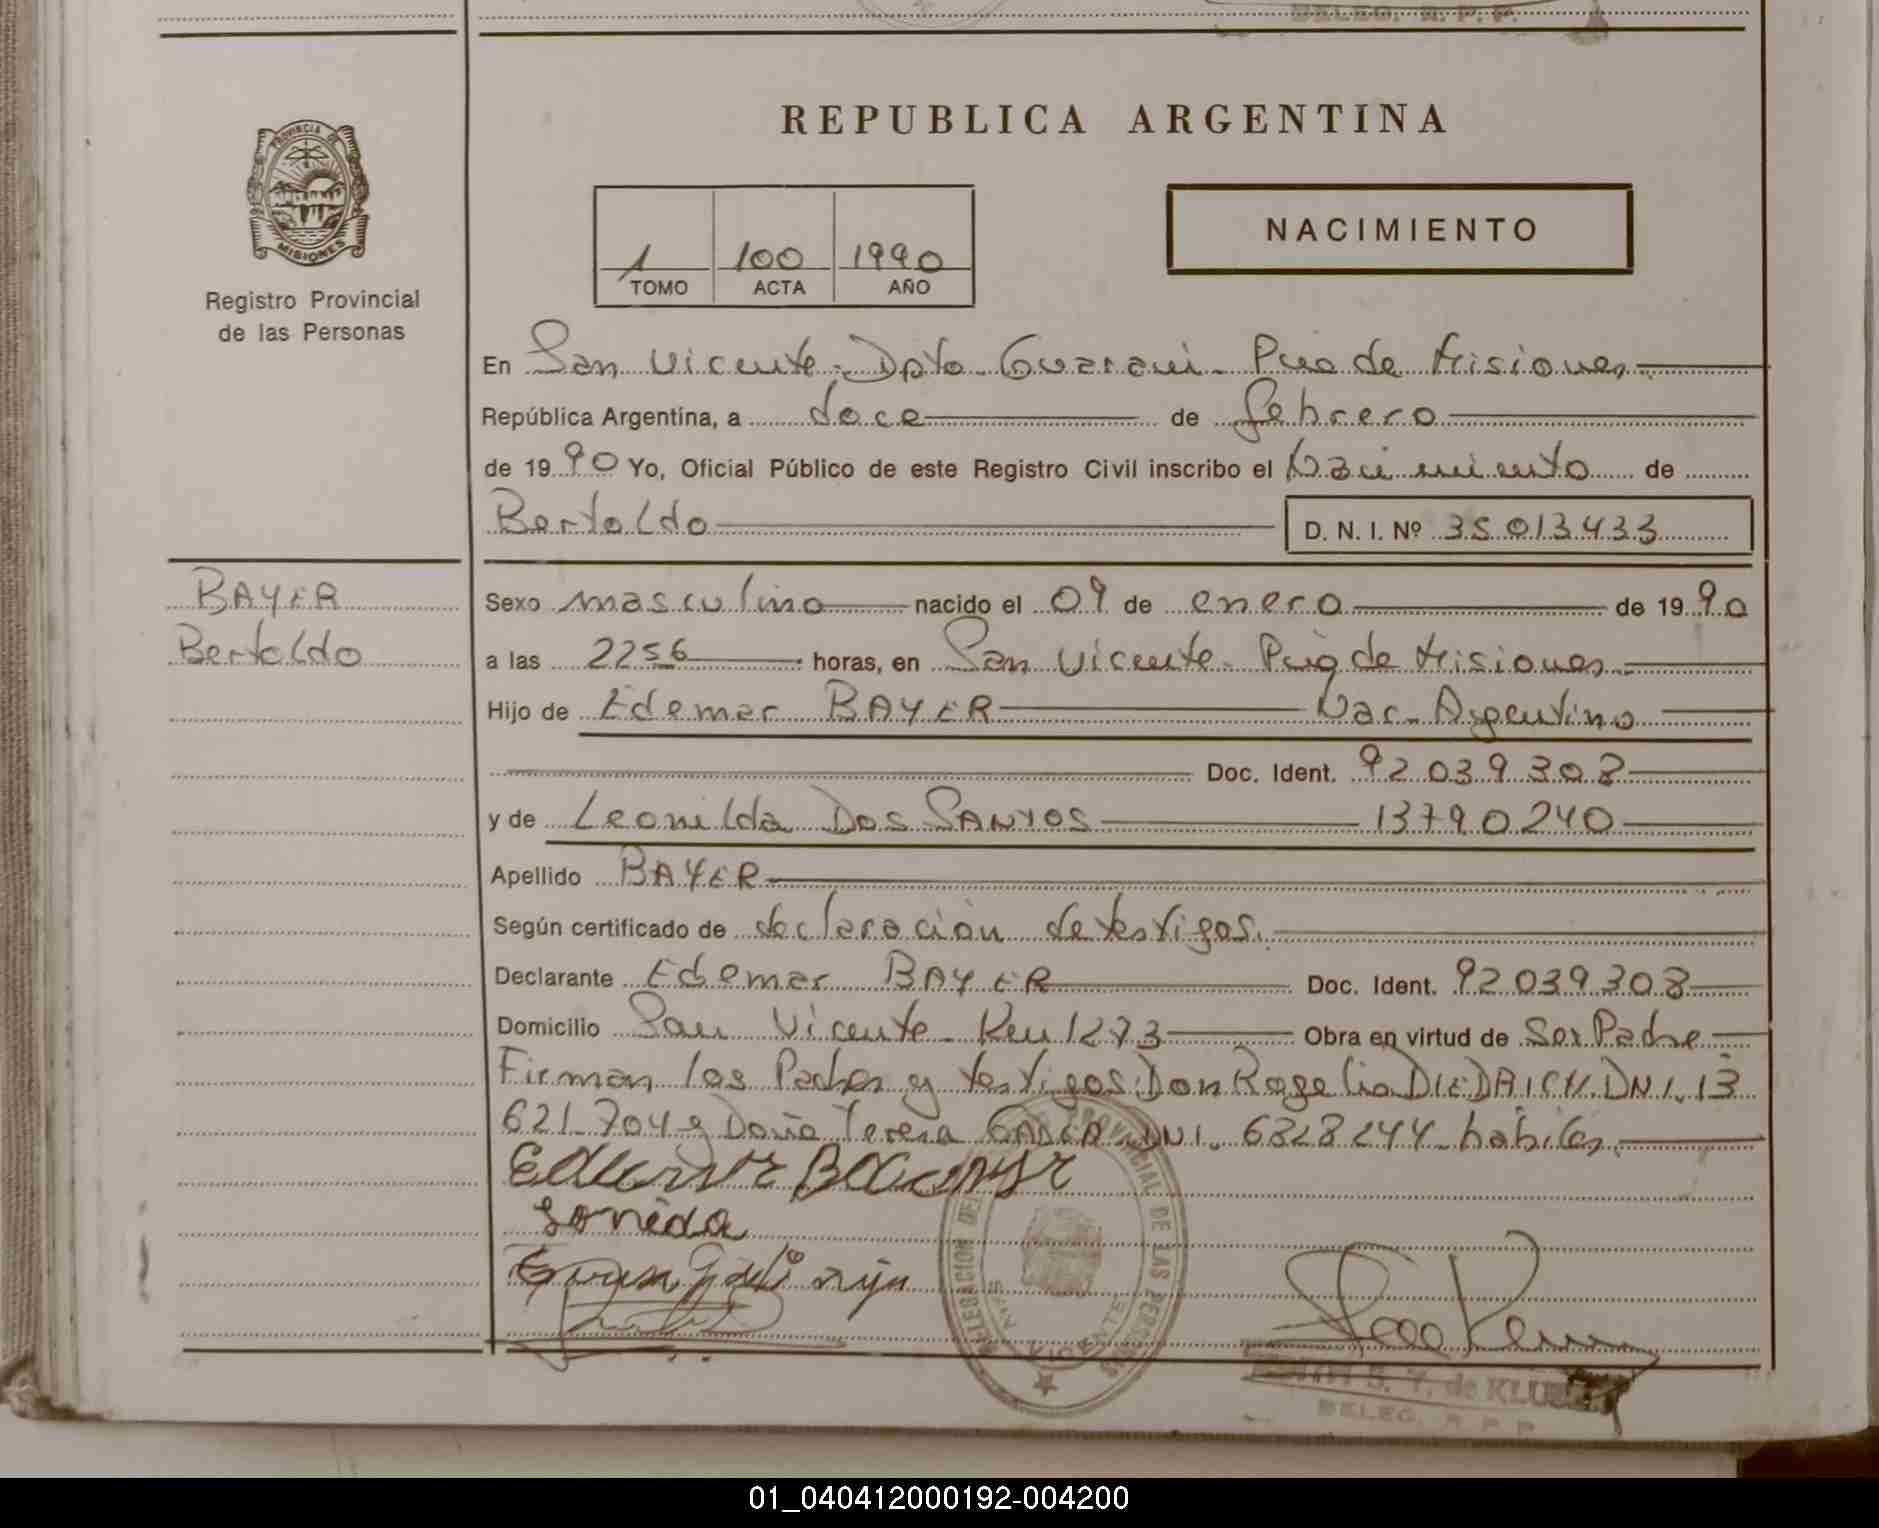 DELEG. R. P. P.
REPUBLICA ARGENTINA
PROVINCIA DE
MISIONES
Registro Provincial
de las Personas
1 100 1990
TOMO ACTA AÑO
NACIMIENTO
En San Vicente, Dpto. Guarani. Pcia de Misiones
República Argentina, a doce de febrero
de 1990 Yo, Oficial Público de este Registro Civil inscribo el Nacimiento de
Bertoldo D. N. I. Nº 35.013.433
BAYER
Bertoldo
Sexo masculino nacido el 09 de enero de 1990
a las 2256 horas, en San Vicente. Pcia de Misiones
Hijo de Edemar BAYER Nac. Argentino
Doc. Ident. 92 039 308
y de Leonilda DOS SANTOS 13790240
Apellido BAYER
Según certificado de declaración de testigos.
Declarante Edemar BAYER Doc. Ident. 92 039 308
Domicilio San Vicente. Km 1273 Obra en virtud de Ser Padre
Firman los Padres y testigos: Don Rogelio DIEDRICH. DNI. 13
621.704 y Doña Teresa DNI. 6828244. habiles
DELEGACION DEL REGISTRO PROVINCIAL DE LAS PERSONAS
SAN VICENTE
S. Y. de KLUBER
DELEG. R. P. P.
01_040412000192-004200